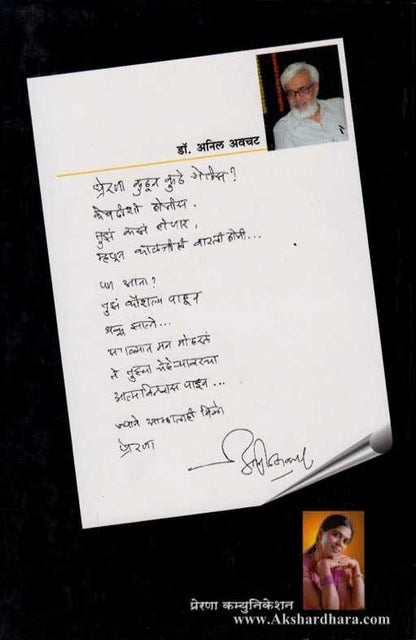 डॉ. अनिल अवचट
प्रेरणा कुठून कुठे गेलीस?
केवढीशी होतीस.
तुझं कसं होणार,
म्हणून काळजीही वाटली होती...
पण आता?
तुझं कौशल्य पाहून
थक्क झालो...
पण मन मोहरलं
ते तुझ्या चेहऱ्यावरचा
आत्मविश्वास पाहून...
ज्याने आम्हालाही मिळो
प्रेरणा
प्रेरणा कम्युनिकेशन
www.Akshardhara.com